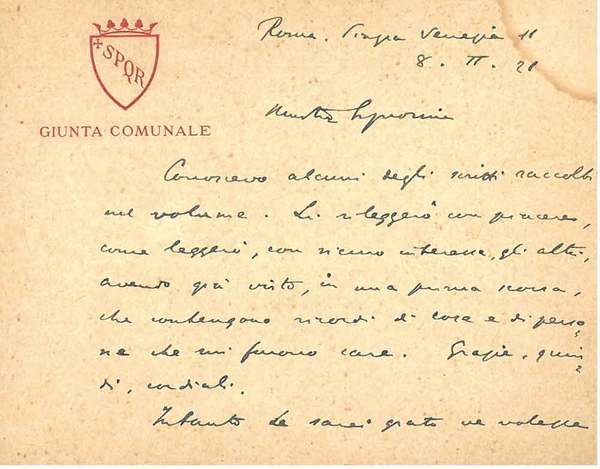 SPQR
GIUNTA COMUNALE
Roma. Piazza Venezia 11
8. II. 21
Conoscevo alcuni degli scritti raccolti
nel volume. Li rileggerò con piacere,
come leggerò, con vivo interesse, gli altri,
avendo già visto, in una prima scorsa,
che contengono ricordi di cose e di perso
ne che mi furono care. Grazie, quin
di, cordiali.
Intanto Le sarei grato se volesse